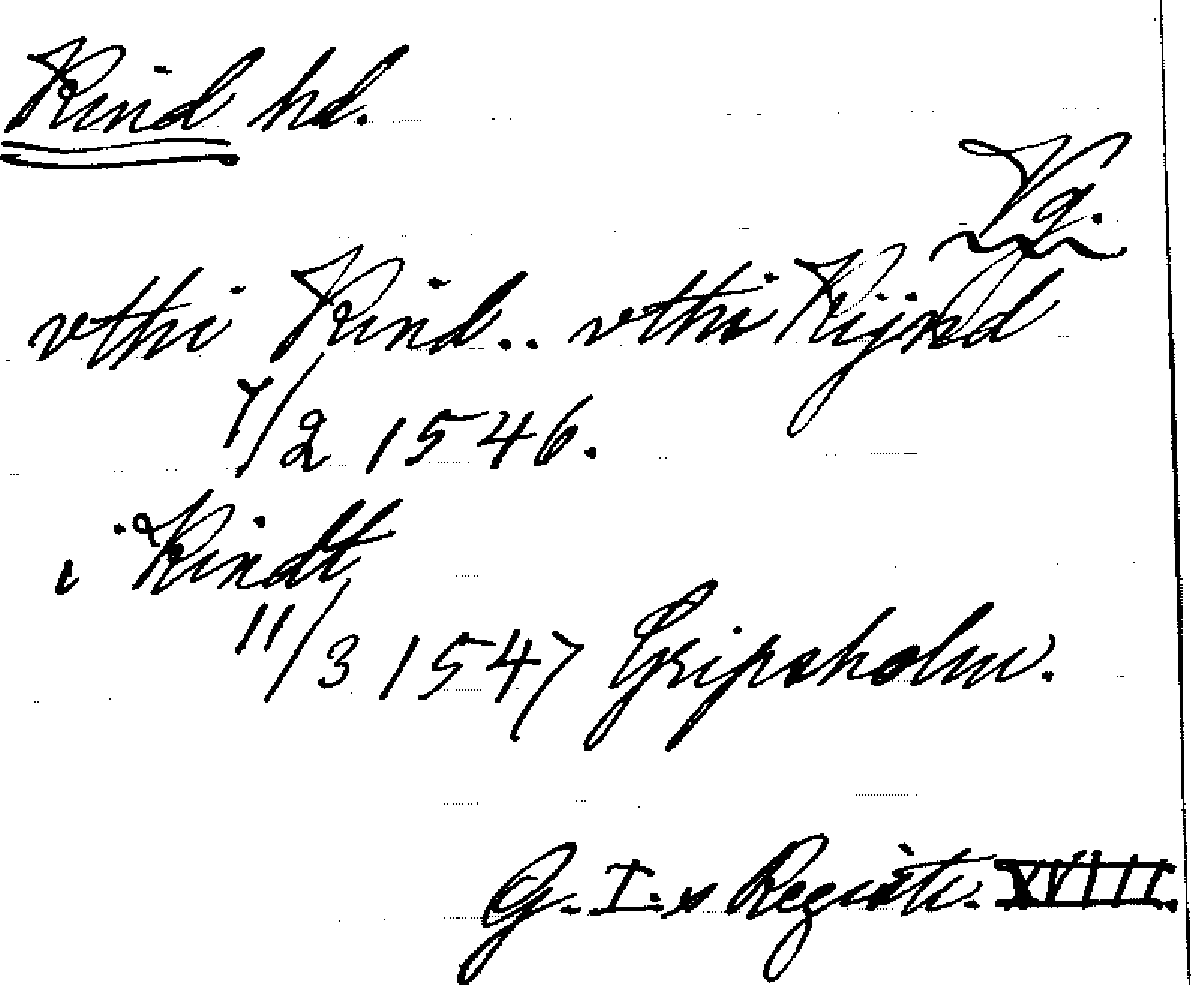 Kind hd.
Vg.
vthi Kind.. vthi Kijnd
7/2 1546.
i Kindt
11/3 1547 Gripsholm.
G. I.s Registr. XVIII.